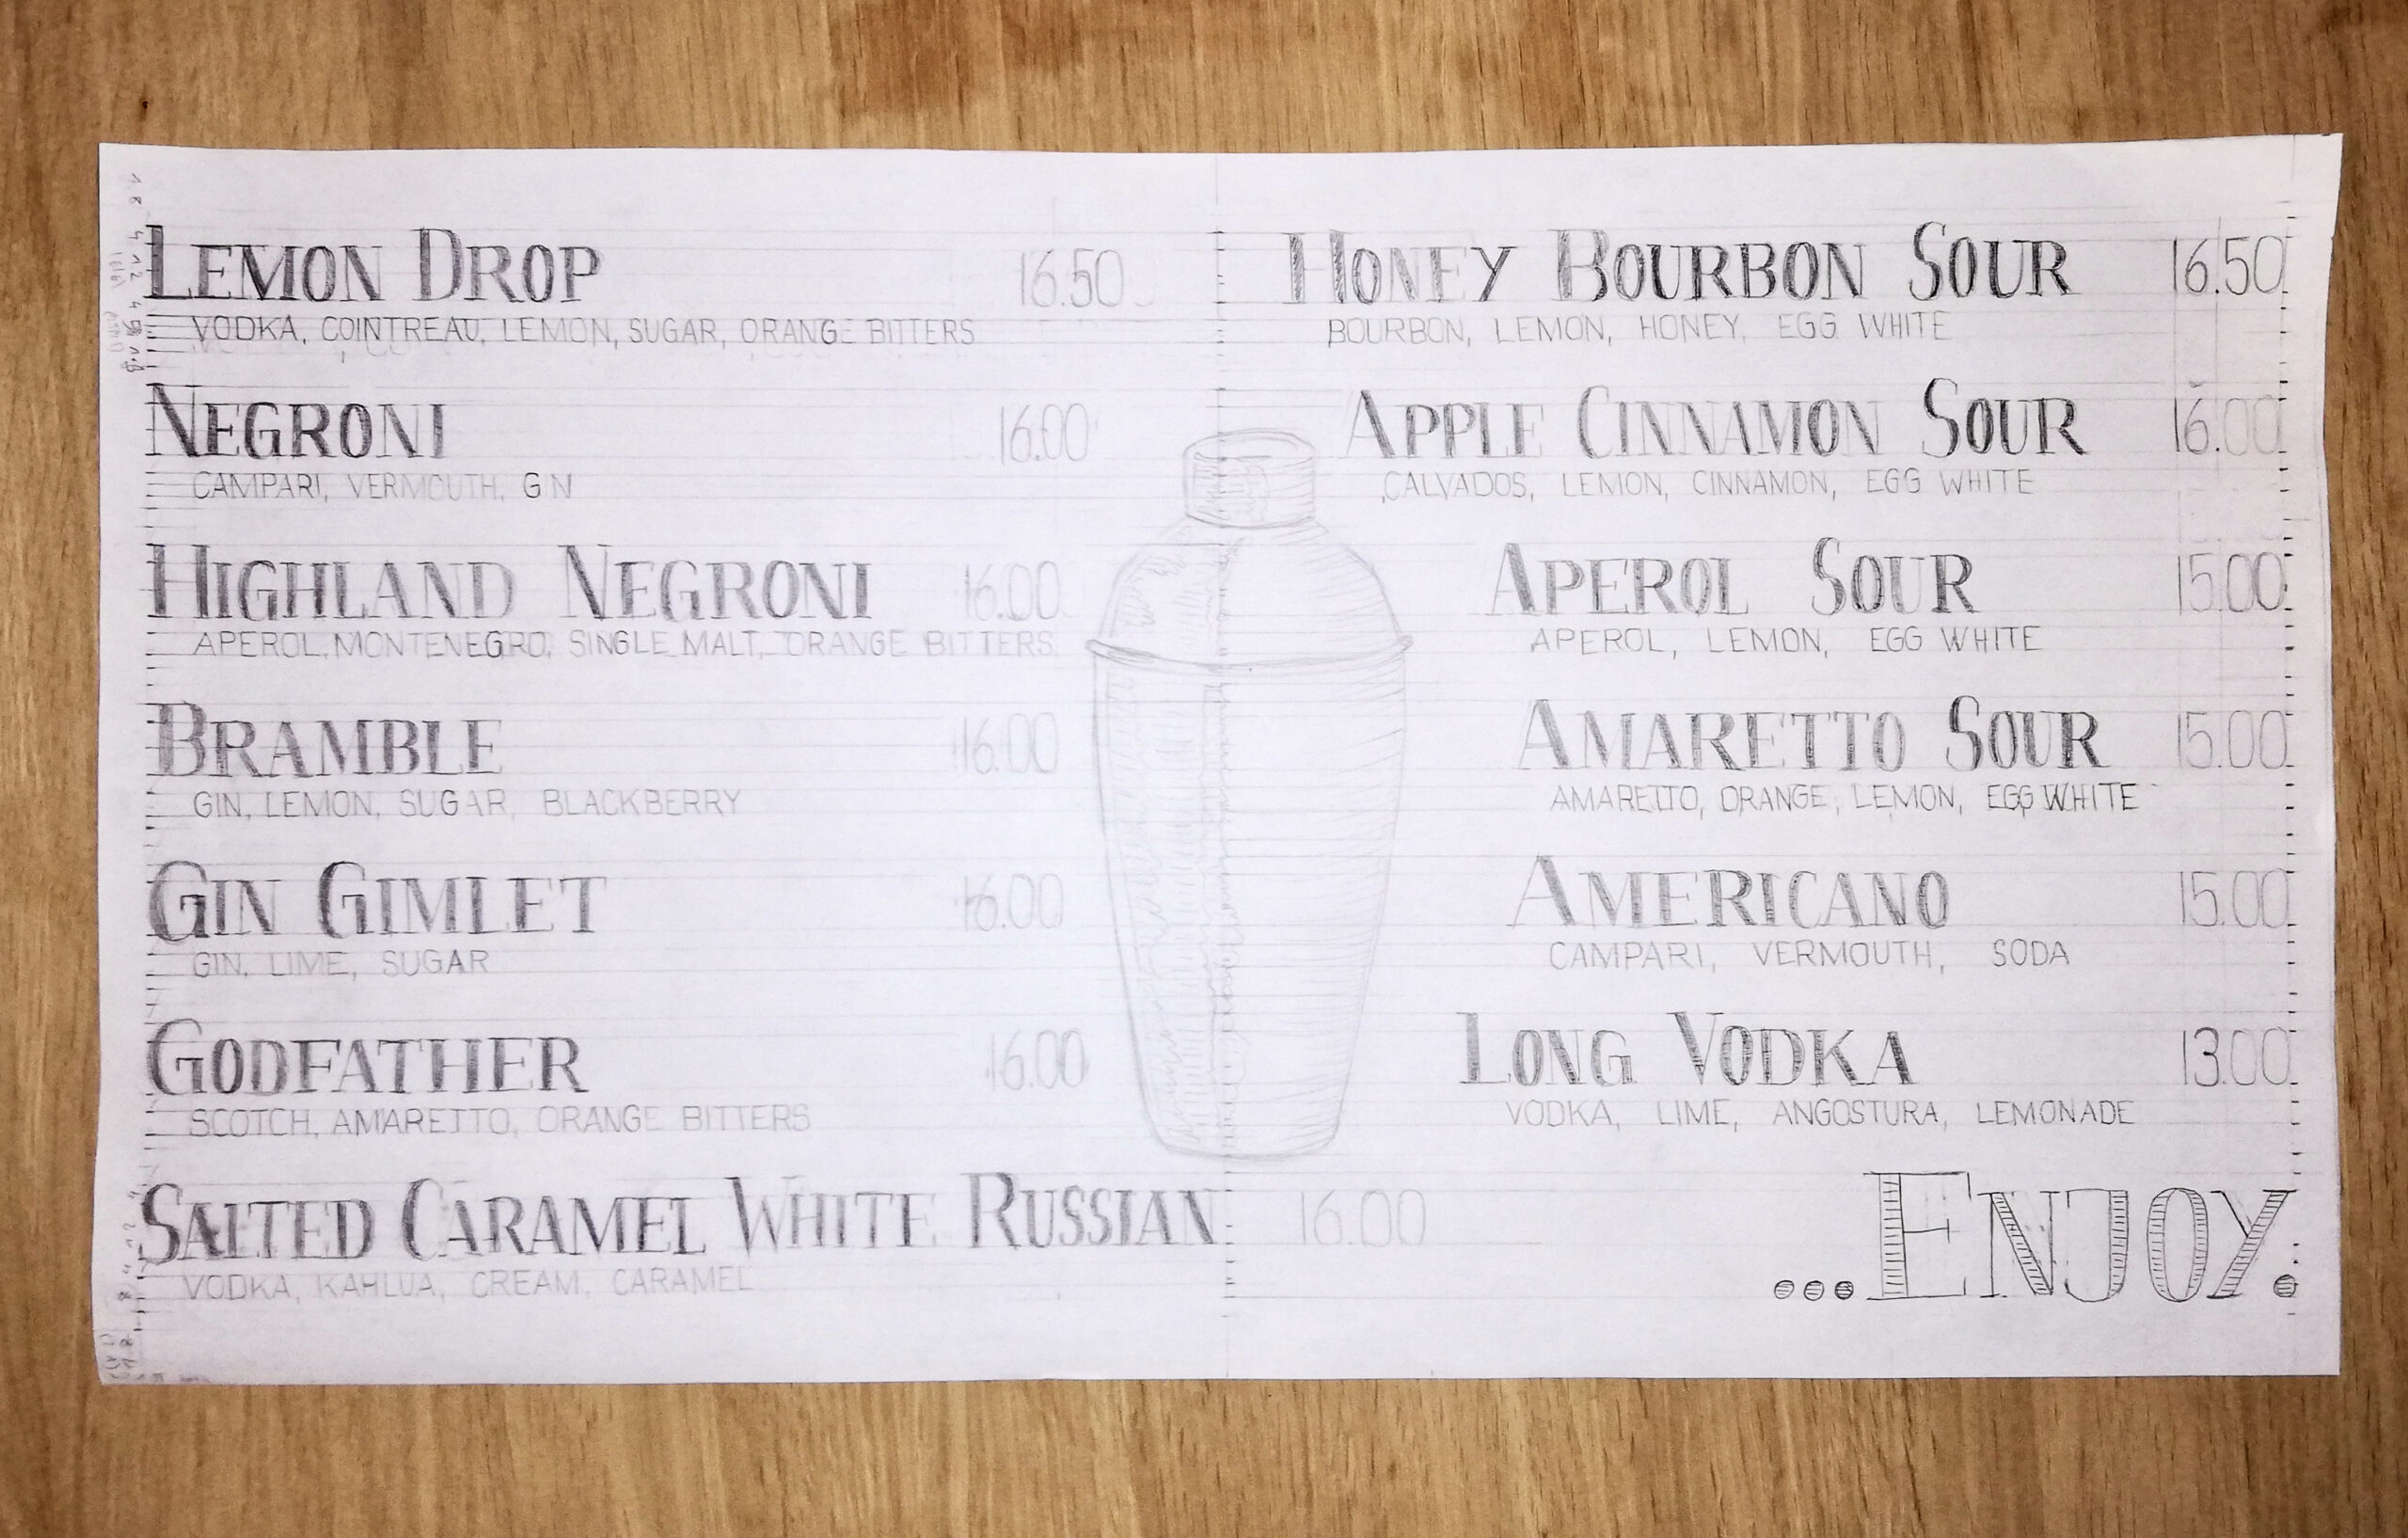 LEMON DROP 16.50
VODKA, COINTREAU, LEMON, SUGAR, ORANGE BITTERS
NEGRONI 16.00
CAMPARI, VERMOUTH, GIN
HIGHLAND NEGRONI 16.00
APEROL, MONTENEGRO, SINGLE MALT, ORANGE BITTERS
BRAMBLE 16.00
GIN, LEMON, SUGAR, BLACKBERRY
GIN GIMLET 16.00
GIN, LIME, SUGAR
GODFATHER 16.00
SCOTCH, AMARETTO, ORANGE BITTERS
SALTED CARAMEL WHITE RUSSIAN 16.00
VODKA, KAHLUA, CREAM, CARAMEL
HONEY BOURBON SOUR 16.50
BOURBON, LEMON, HONEY, EGG WHITE
APPLE CINNAMON SOUR 16.00
CALVADOS, LEMON, CINNAMON, EGG WHITE
APEROL SOUR 15.00
APEROL, LEMON, EGG WHITE
AMARETTO SOUR 15.00
AMARETTO, ORANGE, LEMON, EGG WHITE
AMERICANO 15.00
CAMPARI, VERMOUTH, SODA
LONG VODKA 13.00
VODKA, LIME, ANGOSTURA, LEMONADE
...ENJOY.